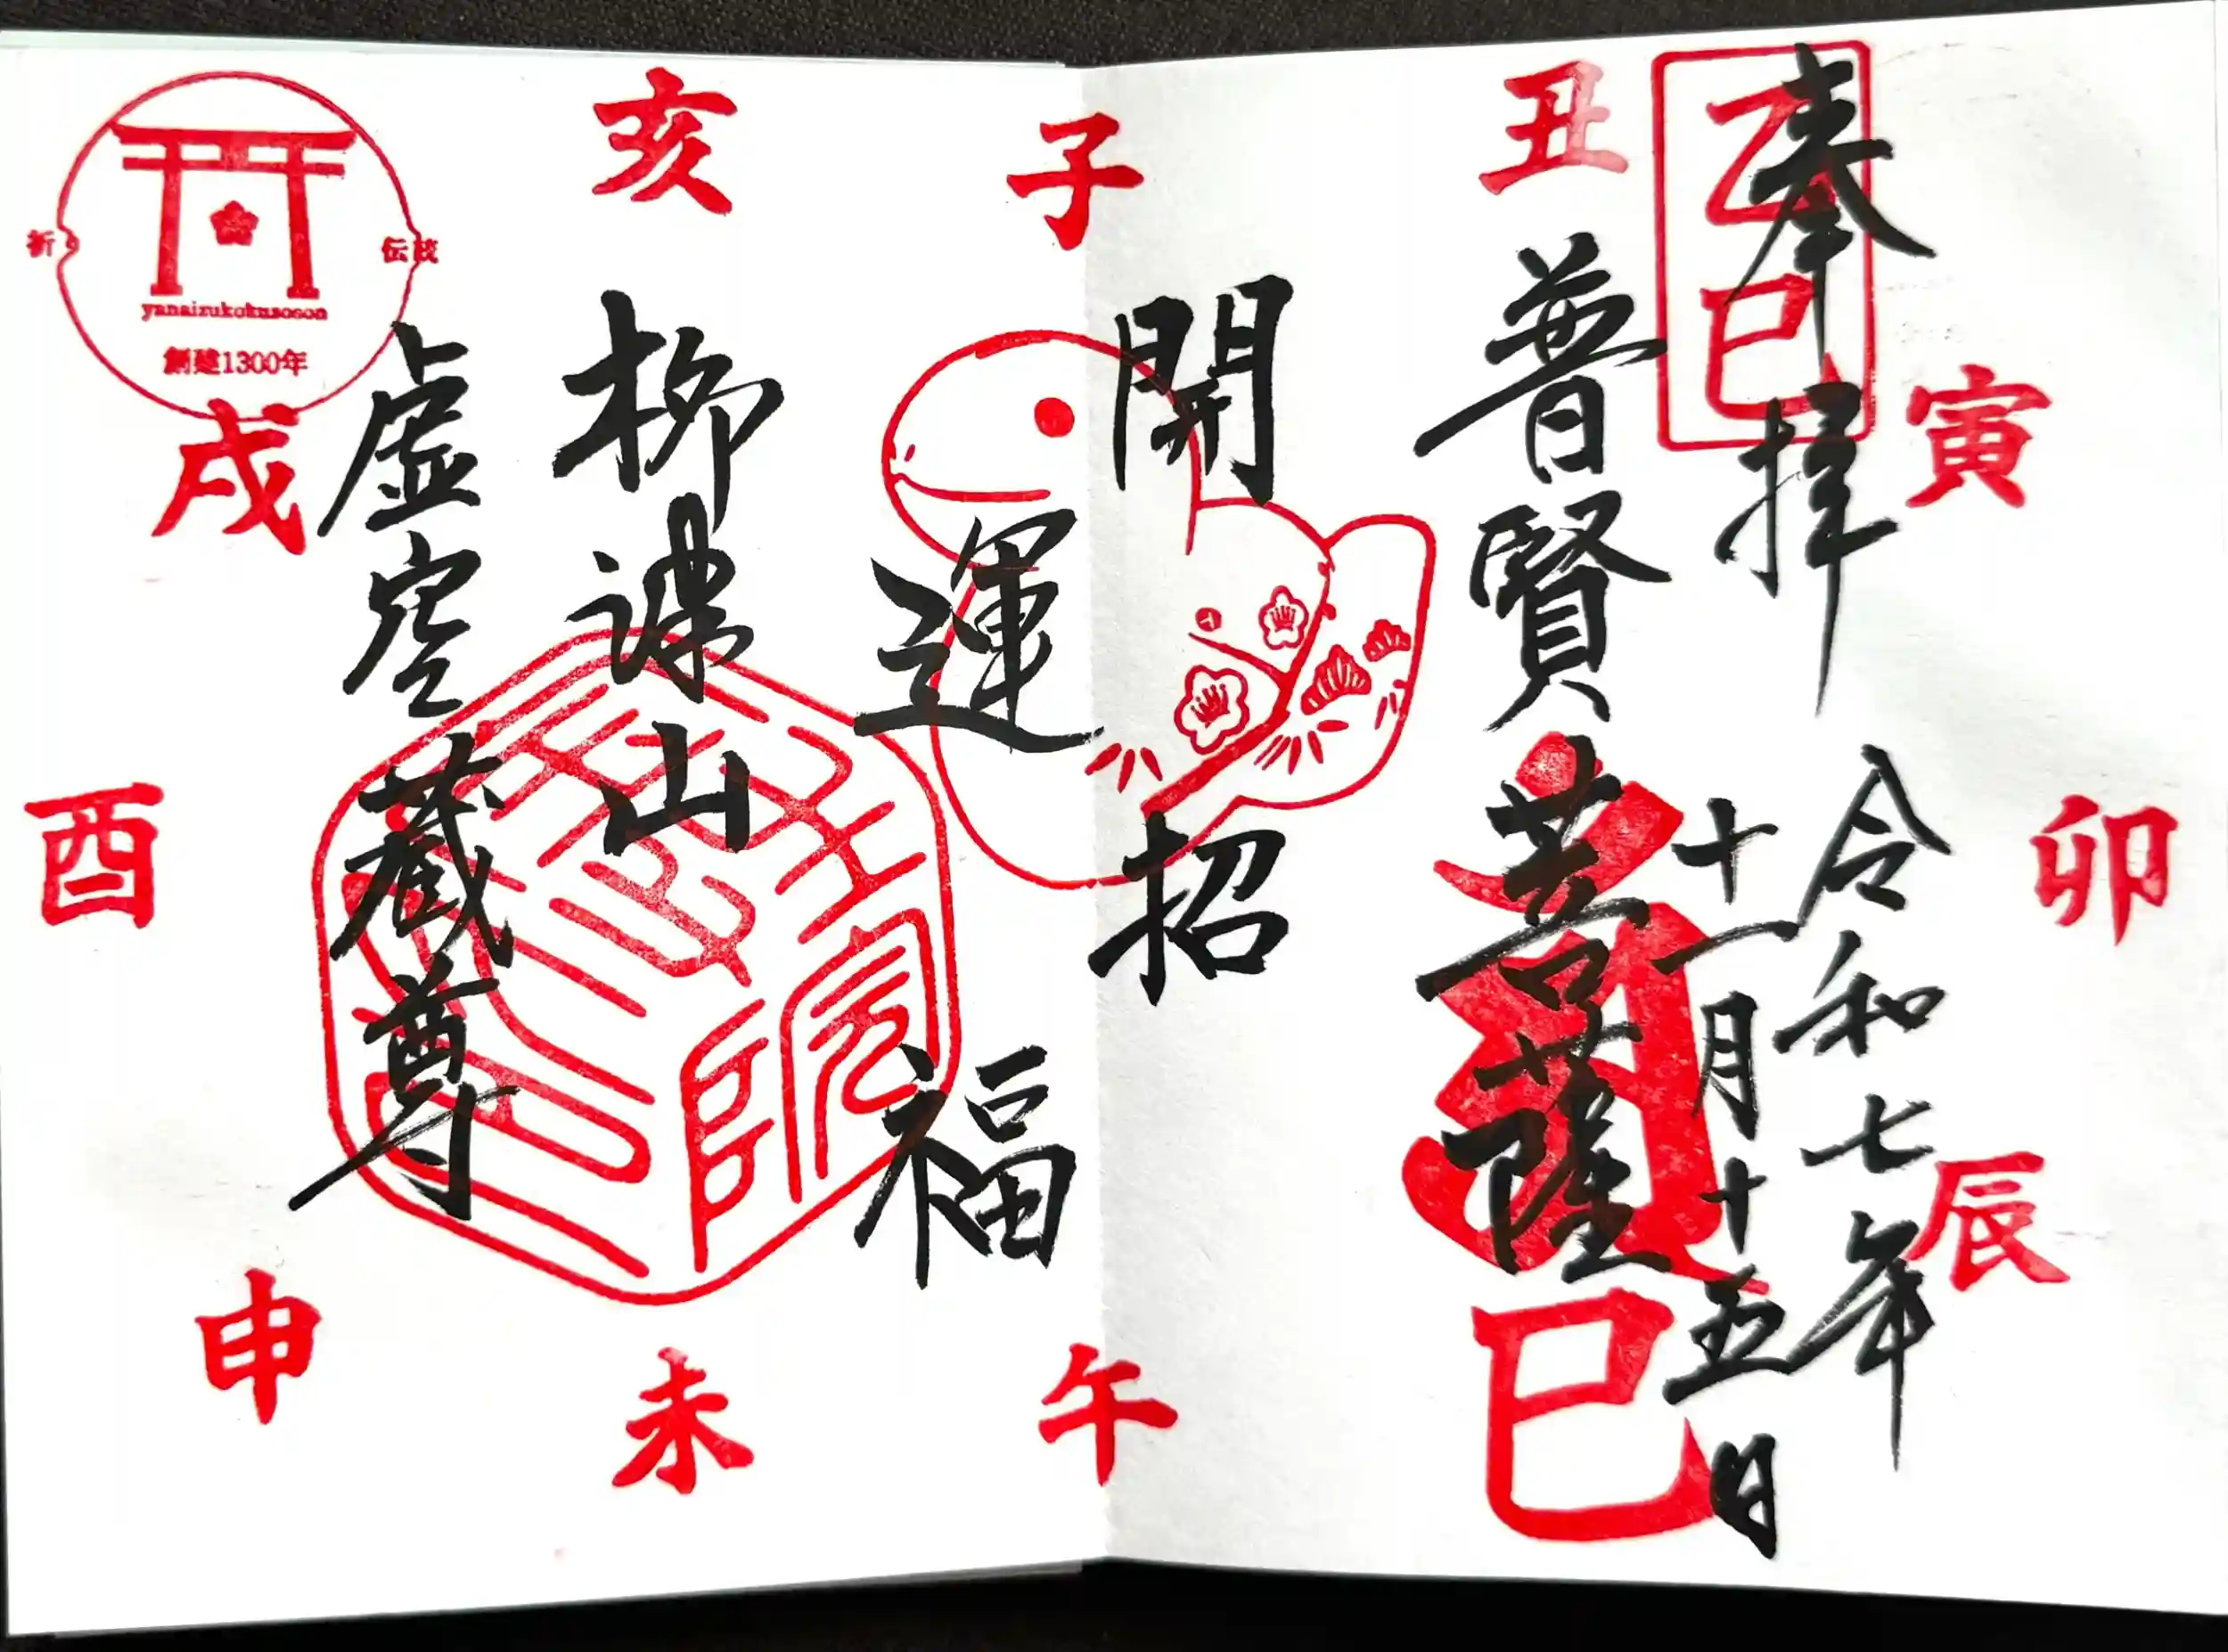 奉拝
乙巳
令和七年
十一月十五日
普賢菩薩
開運招福
柳津山
虚空蔵尊
子
丑
寅
卯
辰
巳
午
未
申
酉
戌
亥
yanaizukokuzoson
創建1300年